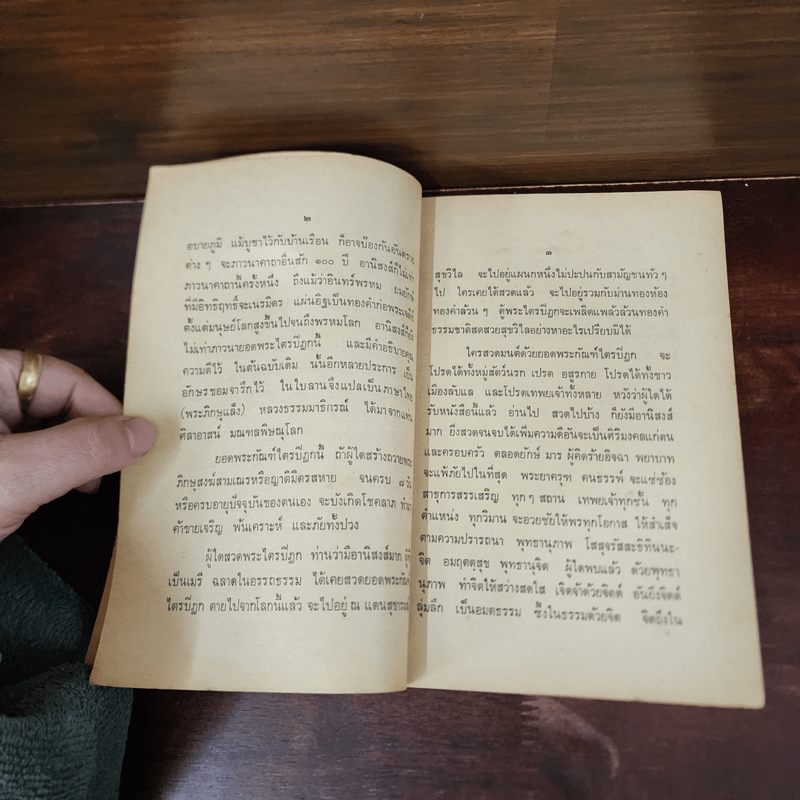 ๒
อบายภูมิ แม้บูชาไว้กับบ้านเรือน ก็อาจป้องกันอันตราย
ต่าง ๆ จะภาวนาคาถาอื่นสัก ๑๐๐ ปี อานิสงส์ก็ไม่เท่า
ภาวนาคาถานี้ครั้งหนึ่ง ถึงแม้ว่าอินทร์พรหม ยมยักษ์
ที่มีอิทธิฤทธิ์จะเนรมิตร แผ่นอิฐเป็นทองคำก่อพระเจดีย์
ตั้งแต่มนุษย์โลกสูงขึ้นไปจนถึงพรหมโลก อานิสงส์ก็ยัง
ไม่เท่าภาวนายอดพระไตรปิฎกนี้ และมีคำอธิบายคุณ
ความดีไว้ ในต้นฉบับเดิม นั้นอีกหลายประการ เป็น
อักษรขอมจารึกไว้ ในใบลานจึงแปลเป็นภาษาไทย
(พระภิกษุแส่ง) หลวงธรรมมาธิกรณ์ ได้มาจากแท่น
ศิลาอาสน์ มณฑลพิษณุโลก
ยอดพระกัณฑ์ไตรปิฎกนี้ ถ้าผู้ใดสร้างถวายพระ
ภิกษุสงฆ์สามเณรหรือญาติมิตรสหาย จนครบ ๗ วัน
หรือครบอายุปัจจุบันของตนเอง จะบังเกิดโชคลาภ ทำมา
ค้าขายเจริญ พ้นเคราะห์ และภัยทั้งปวง
ผู้ใดสวดพระไตรปิฎก ท่านว่ามีอานิสงส์มาก ผู้ที่
เป็นเมธี ฉลาดในอรรถธรรม ได้เคยสวดยอดพระกัณฑ์
ไตรปิฎก ตายไปจากโลกนี้แล้ว จะไปอยู่ ณ แดนสุขารมณ์
๓
สุขวิไล จะไปอยู่แผนกหนึ่งไม่ปะปนกับสามัญชนทั่ว ๆ
ไป ใครเคยได้สวดแล้ว จะไปอยู่รวมกับม่านทองห้อง
ทองคำล้วน ๆ ตู้พระไตรปิฎกจะเพลิดแพล้วล้วนทองคำ
ธรรมชาติสดสวยสุขวิไลอย่างหาอะไรเปรียบมิได้
ใครสวดมนต์ด้วยยอดพระกัณฑ์ไตรปิฎก จะ
โปรดได้ทั้งหมู่สัตว์นรก เปรต อสูรกาย โปรดได้ทั้งชาว
เมืองลับแล และโปรดเทพเจ้าทั้งหลาย หวังว่าผู้ใดได้
รับหนังสือนี้แล้ว อ่านไป สวดไปบ้าง ก็ยังมีอานิสงส์
มาก ยิ่งสวดจนจบได้เพิ่มความดีอันจะเป็นศิริมงคลแก่ตน
และครอบครัว ตลอดยักษ์ มาร ผู้คิดร้ายอิจฉา พยาบาท
จะแพ้ภัยไปในที่สุด พระยาครุฑ คนธรรพ์ จะแซ่ซ้อง
สาธุการสรรเสริญ ทุก ๆ สถาน เทพเจ้าทุกชั้น ทุก
ตำแหน่ง ทุกวิมาน จะอวยชัยให้พรทุกโอกาส ให้สำเร็จ
ตามความปรารถนา พุทธานุภาพ โสสุจรัสสะธิทินนะ-
จิต อมฤตตุสุข พุทธานุจิต ผู้ใดพบแล้ว ด้วยพุทธา
นุภาพ ทำจิตให้สว่างสดใส เจิดจ้าด้วยจิตต์ อันยิ่งจิตต์
ลุ่มลึก เป็นอมตธรรม ซึ้งในธรรมด้วยจิต จิตถึงใน